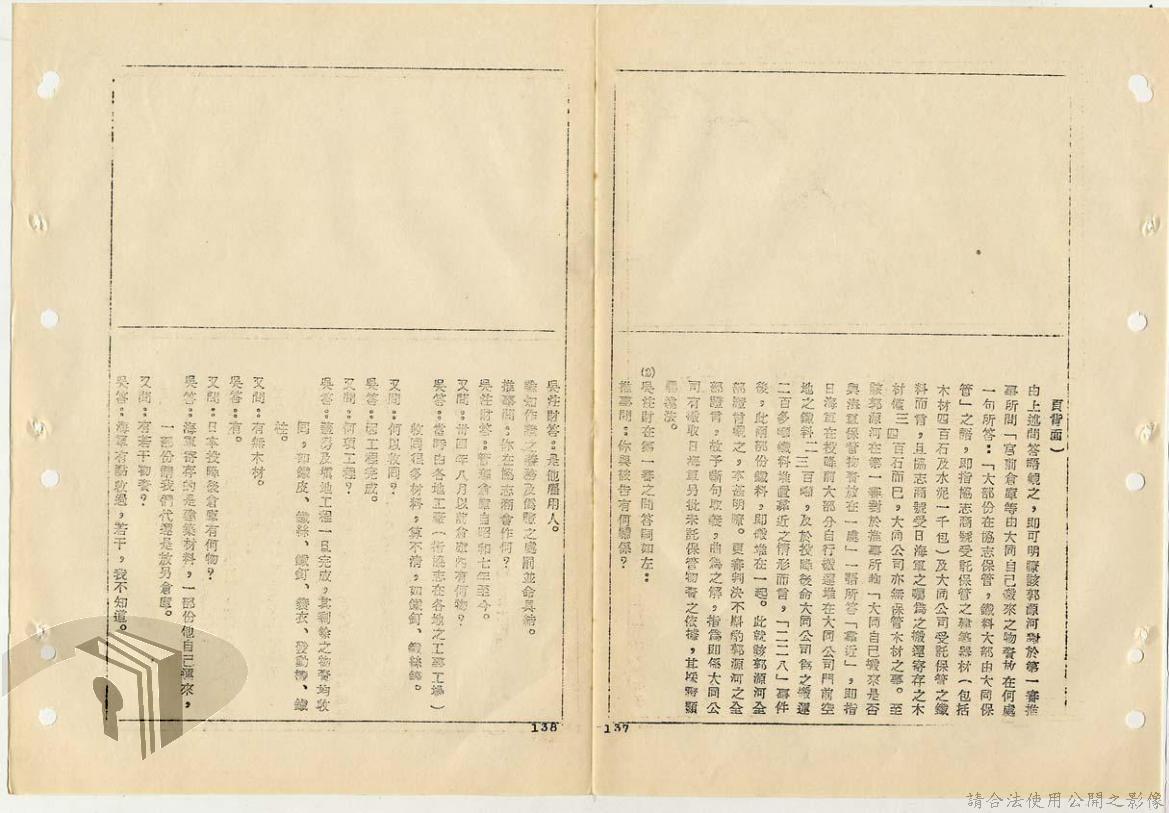 頁背面)
由上述問答語觀之,即可明瞭該郭源河對於第一審推
事所問「宮前倉庫等由大同自己搬來之物資放在何處
一句所答:「大部份在協志保管,鐵料大部由大同保
管」之語,即指協志商號受託保管之建築器材(包括
木材四百石及水泥一千包)及大同公司受託保管之鐵
料而言,且協志商號受日海軍之囑為之搬運寄存之木
材僅三、四百石而已,大同公司亦無保管木材之事。至
該郭源河在第一審對於推事所詢「大同自己搬來是否
與海軍保管物資放在一處」一語所答「靠近」,即指
日海軍在投降前大部分自行搬運堆在大同公司門前空
地之鐵料二、三百噸,及於投降後命大同公司為之搬運
二百多噸鐵料堆置靠近之情形而言,「二二八」事件
後,此兩部份鐵料,即搬堆在一起。此就該郭源河之全
部證言觀之,本甚明瞭。更審判決不顧郭源河之全
部證言,故予斷句取義,曲為之解,指為即係大同公
司有搬取日海軍另批未託保管物資之依據,其採證顯
屬違法。
(2)吳法財在第一審之問答詞如左:
推事問:你與被告有何關係?
137
吳法財答:是他雇用人。
諭知作證之義務及偽證之處罰並命具結。
推事問:你在協志商會作何?
吳法財答:管理倉庫自昭和七年至今。
又問:卅四年八月以前倉庫內有何物?
吳答:當時由各地工廠(指協志在各地之工事工場)
收回很多材料,算不清,如鐵釘、鐵絲等。
又問:何以收回?
吳答:因工程完成。
又問:何項工程?
吳答:營房及填地工程一旦完成,其剩餘之物資均收
回,如鐵皮、鐵絲、鐵釘、雜衣、發動機、鐵
柱。
又問:有無木材。
吳答:有。
又問:日本投降後倉庫有何物?
吳答:海軍寄存的是建築材料,一部份他自己運來,
一部份讓我們代運是放另倉庫。
又問:有若干物資?
吳答:海軍有點收過,若干,我不知道。
138
請合法使用公開之影像